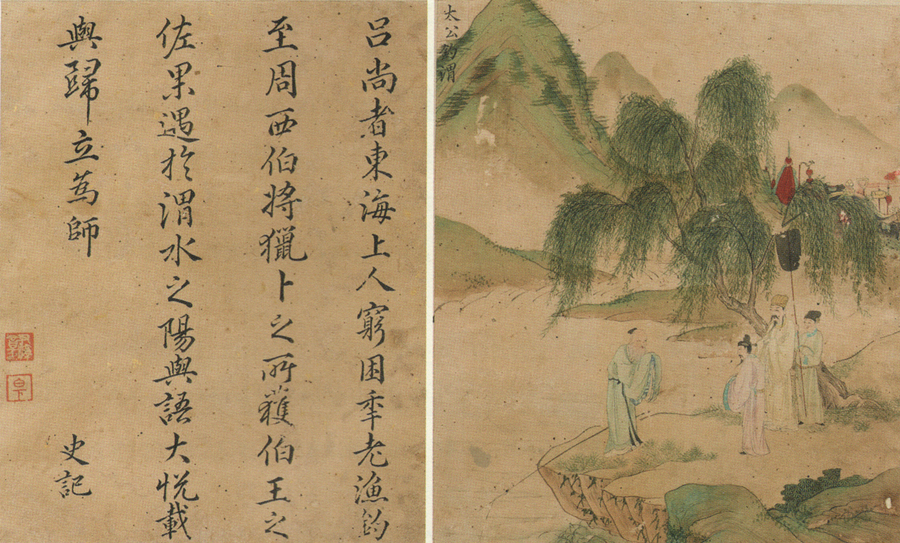 太公釣渭
呂尚者東海上人窮困秊老漁釣
至周西伯將獵卜之所獲伯王之
佐果遇於渭水之陽與語大悅載
與歸立為師
史記